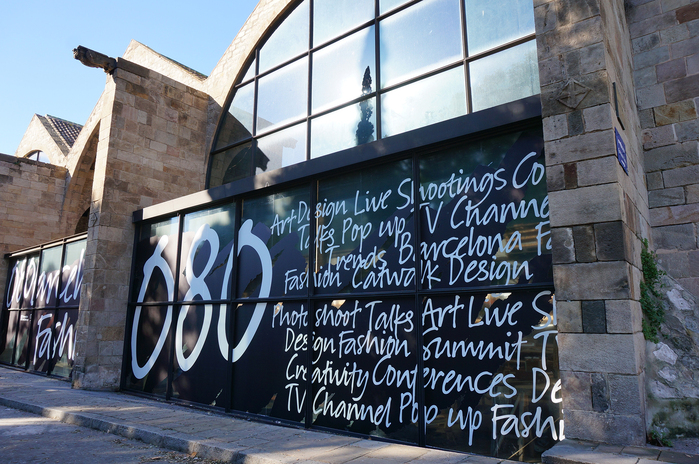 080
Art Design Live Shootings Co
Talks Pop up TV Channe
Trends Barcelona Fa
Fashion Catwalk Design
Photoshoot Talks Art Live S
Design Fashion Summit T
Creativity Conferences De
TV Channel Pop up Fashi
Fa